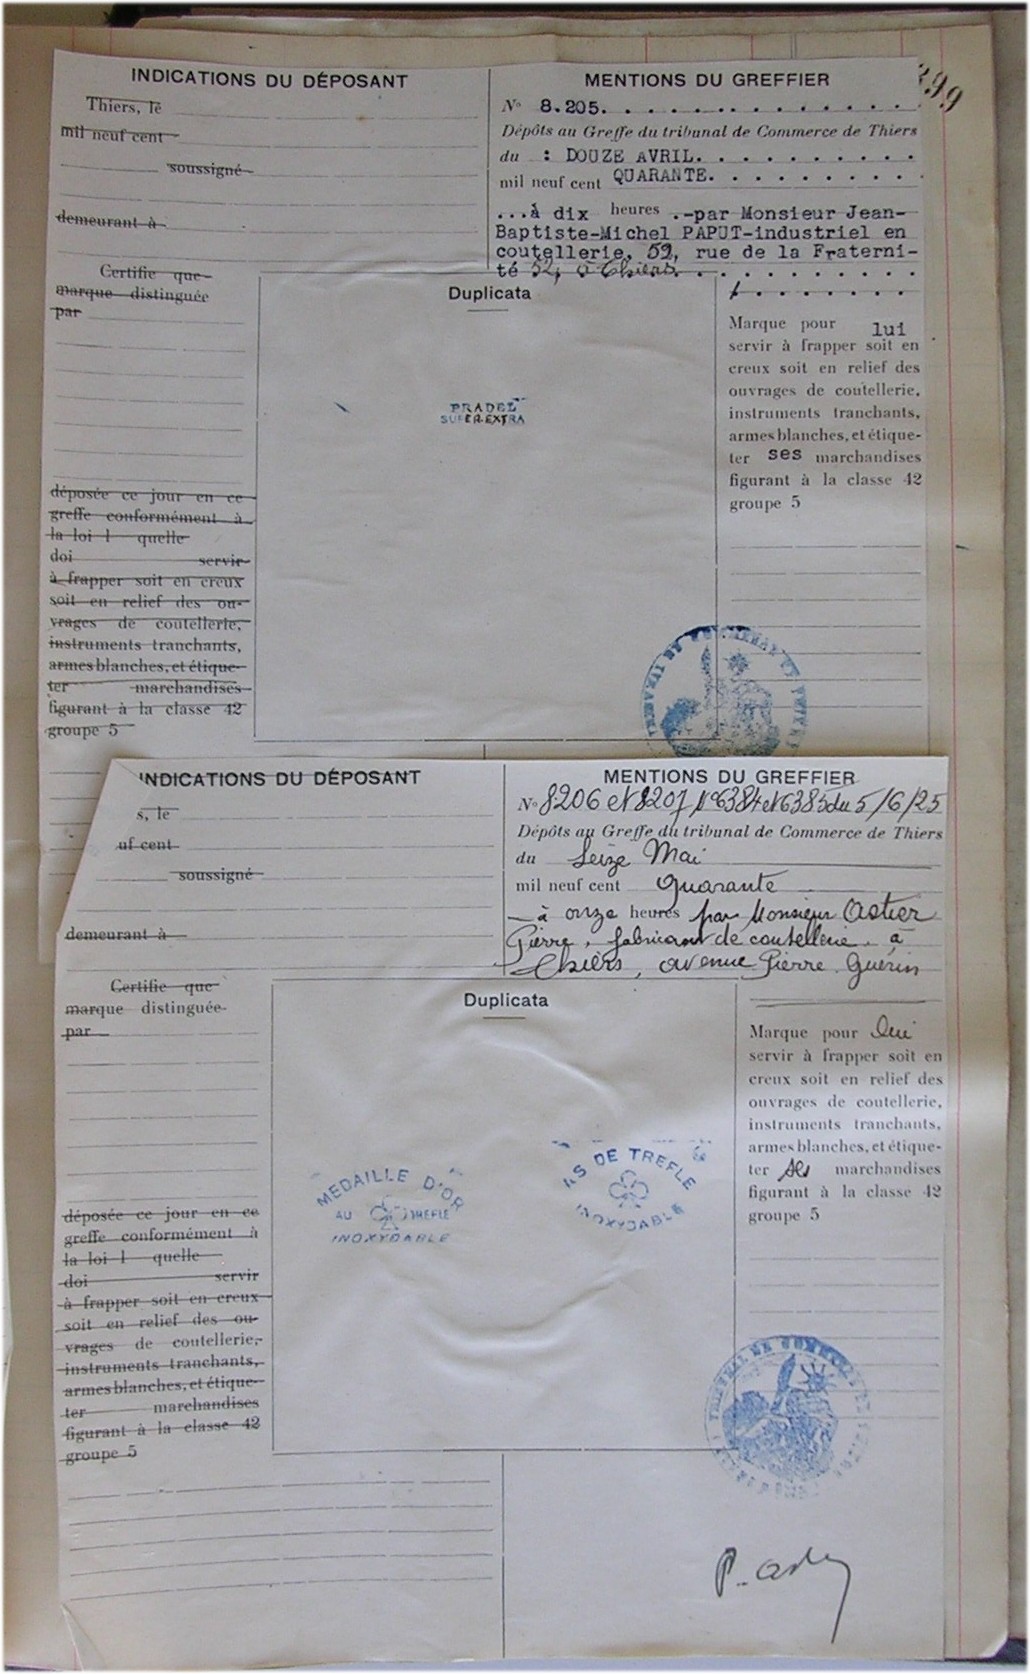 399
INDICATIONS DU DÉPOSANT
Thiers, le
mil neuf cent
soussigné
demeurant à
Certifie que
marque distinguée
par
déposée ce jour en ce
greffe conformément à
la loi l quelle
doi servir
à frapper soit en creux
soit en relief des ou-
vrages de coutellerie,
instruments tranchants,
armes blanches, et étique-
ter marchandises
figurant à la classe 42
groupe 5
MENTIONS DU GREFFIER
N° 8.205.
Dépôts au Greffe du tribunal de Commerce de Thiers
du : DOUZE AVRIL.
mil neuf cent QUARANTE.
...à dix heures .-par Monsieur Jean-
Baptiste-Michel PAPUT-industriel en
coutellerie, 52, rue de la Fraterni-
té 52, à Thiers.
Duplicata
PRADEL
SUPER EXTRA
Marque pour lui
servir à frapper soit en
creux soit en relief des
ouvrages de coutellerie,
instruments tranchants,
armes blanches, et étique-
ter ses marchandises
figurant à la classe 42
groupe 5
INDICATIONS DU DÉPOSANT
s, le
uf cent
soussigné
demeurant à
Certifie que
marque distinguée
par
déposée ce jour en ce
greffe conformément à
la loi l quelle
doi servir
à frapper soit en creux
soit en relief des ou-
vrages de coutellerie,
instruments tranchants,
armes blanches, et étique-
ter marchandises
figurant à la classe 42
groupe 5
MENTIONS DU GREFFIER
N° 8206 et 8207 N° 6384 et 6385 du 5/6/25
Dépôts au Greffe du tribunal de Commerce de Thiers
du Seize Mai
mil neuf cent Quarante
à onze heures par Monsieur Astier
Pierre, fabricant de coutellerie, à
Thiers, avenue Pierre Guérin
Duplicata
MEDAILLE D'OR
AU TREFLE
INOXYDABLE
AS DE TREFLE
INOXYDABLE
Marque pour lui
servir à frapper soit en
creux soit en relief des
ouvrages de coutellerie,
instruments tranchants,
armes blanches, et étique-
ter ses marchandises
figurant à la classe 42
groupe 5